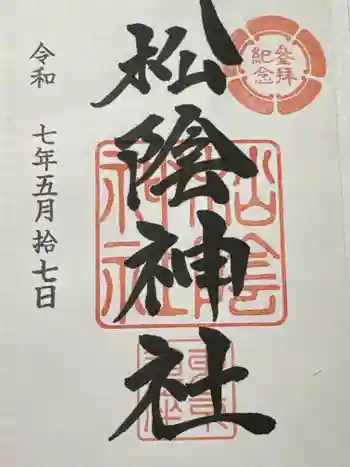 参拝
紀念
松陰神社
松陰
神社
令和 七年五月拾七日